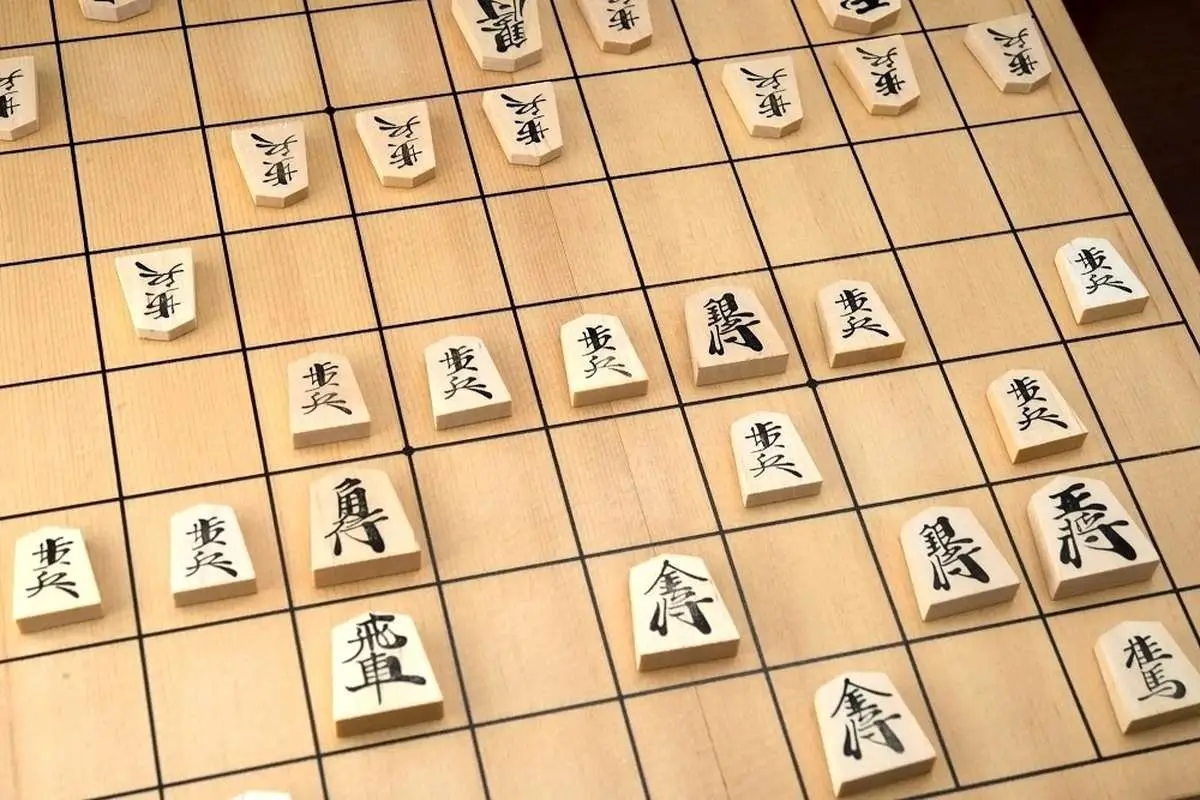 銀将
歩兵
歩兵
歩兵
歩兵
歩兵
歩兵
歩兵
歩兵
歩兵
歩兵
歩兵
銀将
歩兵
歩兵
歩兵
歩兵
歩兵
王将
銀将
角行
歩兵
歩兵
金将
飛車
桂馬
金将